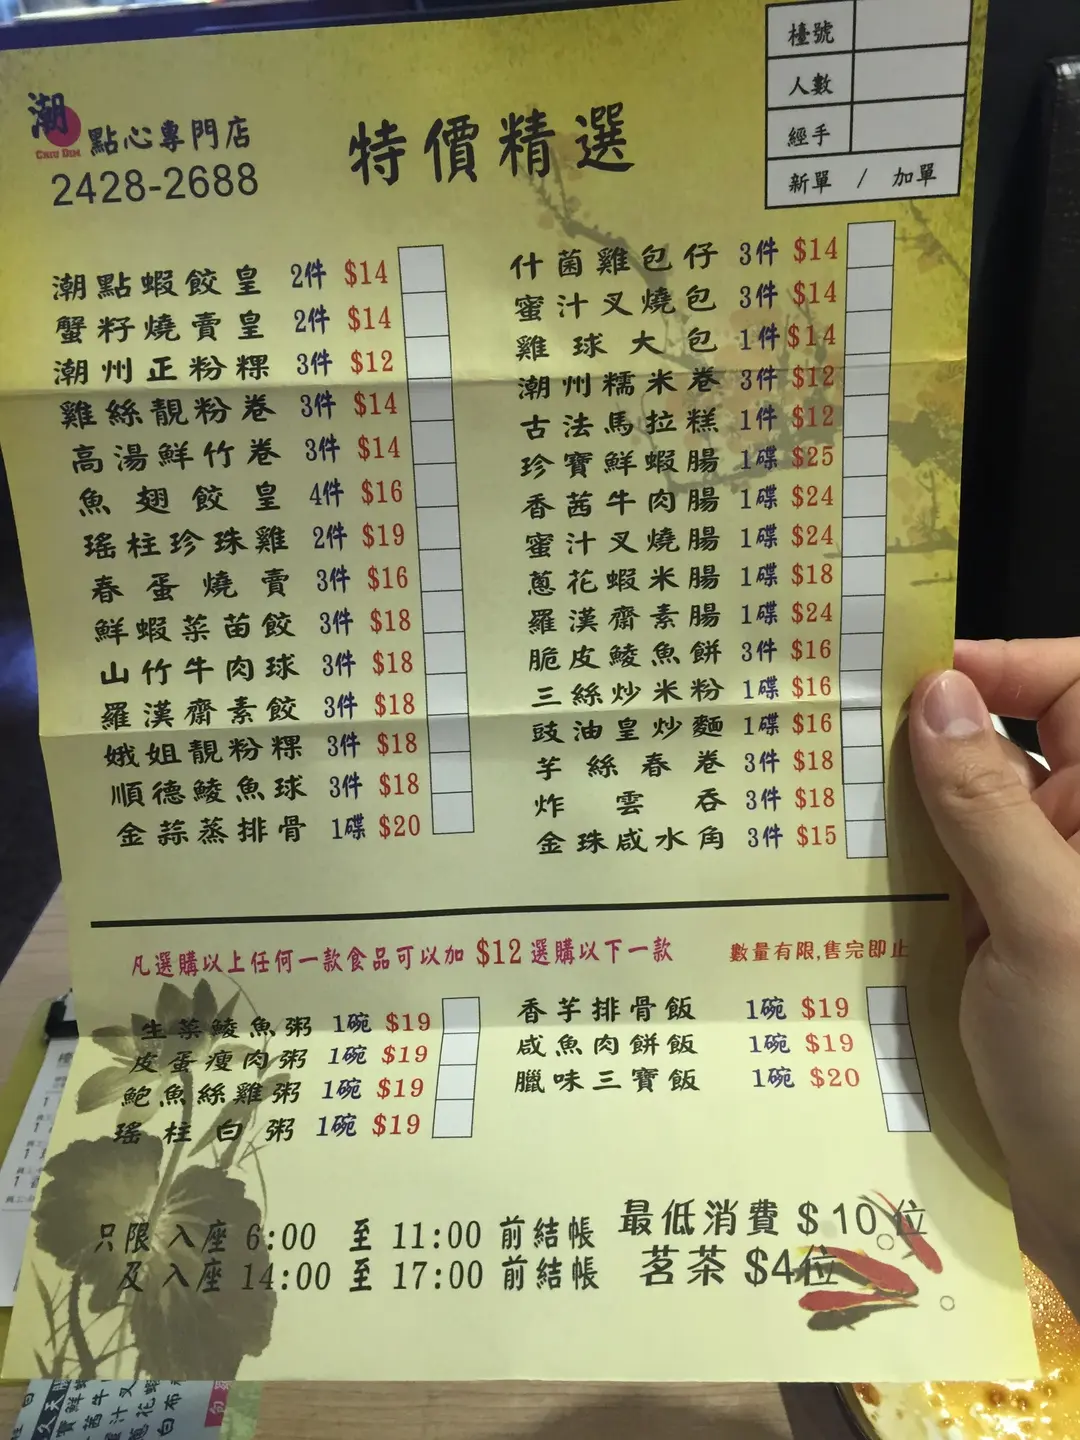 潮
CHIU DIM
點心專門店
2428-2688
特價精選
檯號
人數
經手
新單 / 加單
潮點蝦餃皇 2件 $14
蟹籽燒賣皇 2件 $14
潮州正粉粿 3件 $12
雞絲靚粉卷 3件 $14
高湯鮮竹卷 3件 $14
魚翅餃皇 4件 $16
瑤柱珍珠雞 2件 $19
春蛋燒賣 3件 $16
鮮蝦菜苗餃 3件 $18
山竹牛肉球 3件 $18
羅漢齋素餃 3件 $18
娥姐靚粉粿 3件 $18
順德鯪魚球 3件 $18
金蒜蒸排骨 1碟 $20
什菌雞包仔 3件 $14
蜜汁叉燒包 3件 $14
雞球大包 1件 $14
潮州糯米卷 3件 $12
古法馬拉糕 1件 $12
珍寶鮮蝦腸 1碟 $25
香茜牛肉腸 1碟 $24
蜜汁叉燒腸 1碟 $24
蔥花蝦米腸 1碟 $18
羅漢齋素腸 1碟 $24
脆皮鯪魚餅 3件 $16
三絲炒米粉 1碟 $16
豉油皇炒麵 1碟 $16
芋絲春卷 3件 $18
炸雲吞 3件 $18
金珠咸水角 3件 $15
凡選購以上任何一款食品可以加 $12 選購以下一款
數量有限,售完即止
生菜鯪魚粥 1碗 $19
皮蛋瘦肉粥 1碗 $19
鮑魚絲雞粥 1碗 $19
瑤柱白粥 1碗 $19
香芋排骨飯 1碗 $19
咸魚肉餅飯 1碗 $19
臘味三寶飯 1碗 $20
只限 入座 6:00 至 11:00 前結帳
及 入座 14:00 至 17:00 前結帳
最低消費 $ 10 位
茗茶 $4位